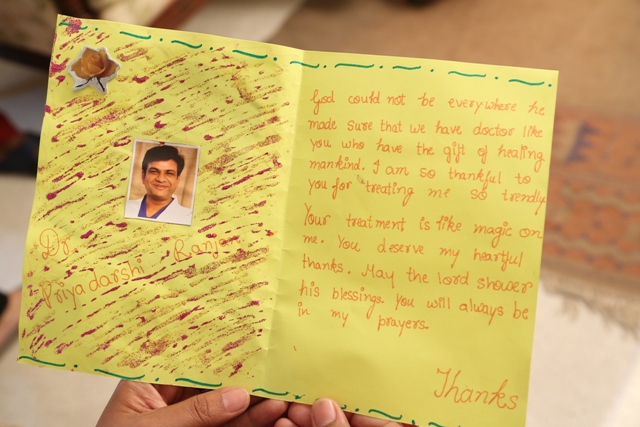 Dr.
Priyadarshi Ranjan
God could not be everywhere he
made sure that we have doctor like
you who have the gift of healing
mankind. I am so thankful to
you for "treating me so trendly
Your treatment is like magic on
me. You deserve my heartful
thanks. May the lord shower
his blessings you will always be
in my prayers.
Thanks